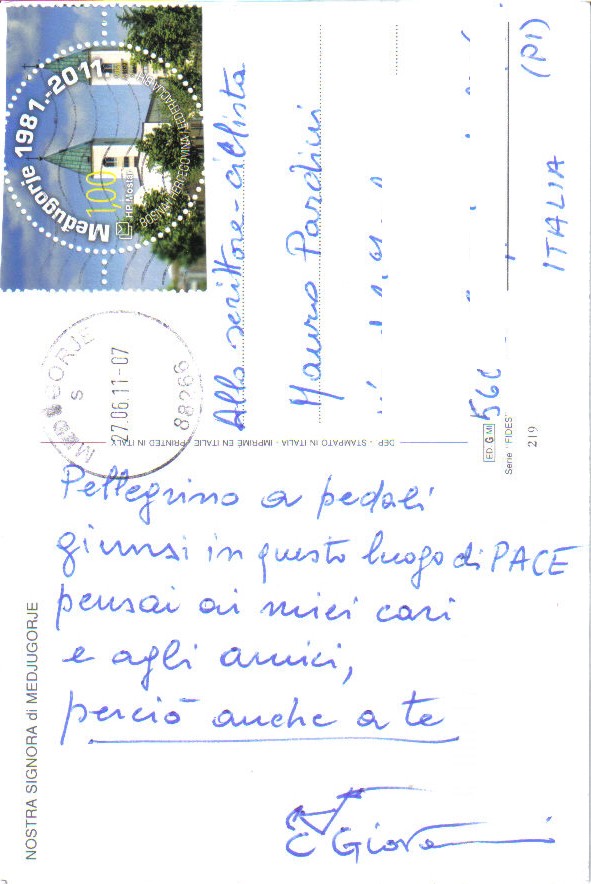 Pellegrino a pedali
giunsi in questo luogo di PACE
pensai ai miei cari
e agli amici,
perciò anche a te
Giova
NOSTRA SIGNORA di MEDJUGORJE
DEP - STAMPATO IN ITALIA - IMPRIME EN ITALIE - PRINTED IN ITALY
Medugorje 1981.-2011.
1,00
HP Mostar
BOSNA I HERCEGOVINA
27.06.11-07
88266
Allo scrittore-ciclista
Mauro Pardini
560
(PI)
ITALIA
ED G M
Serie "FIDES"
219